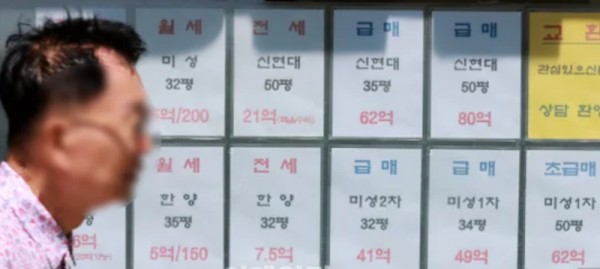 월세
미성
32평
억/200
전세
신현대
50평
21억
급매
신현대
35평
62억
급매
신현대
50평
80억
교환
관심있으신
상담 환영
6억
월세
한양
35평
5억/150
전세
한양
32평
7.5억
급매
미성2차
32평
41억
급매
미성1차
34평
49억
초급매
미성1차
50평
62억